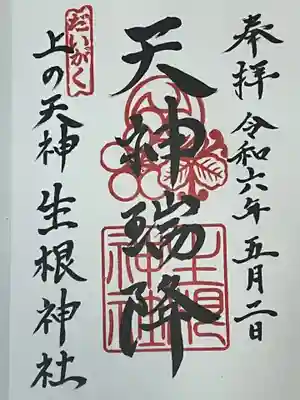 奉拝 令和六年 五月二日
天神瑞降
だいがく
上の天神 生根神社
生根神社